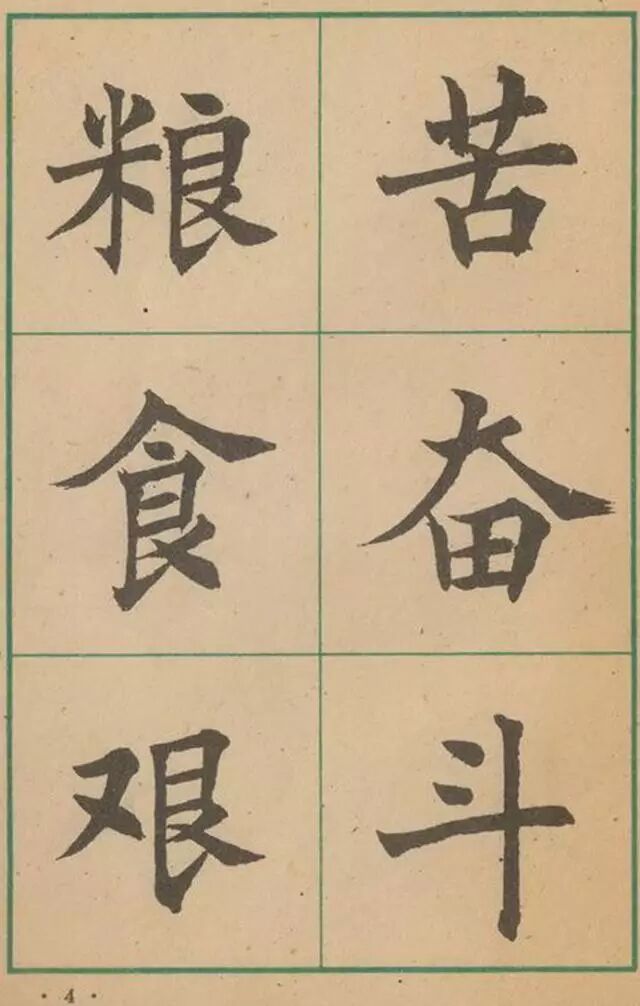 粮食艰
苦奋斗
· 4 ·